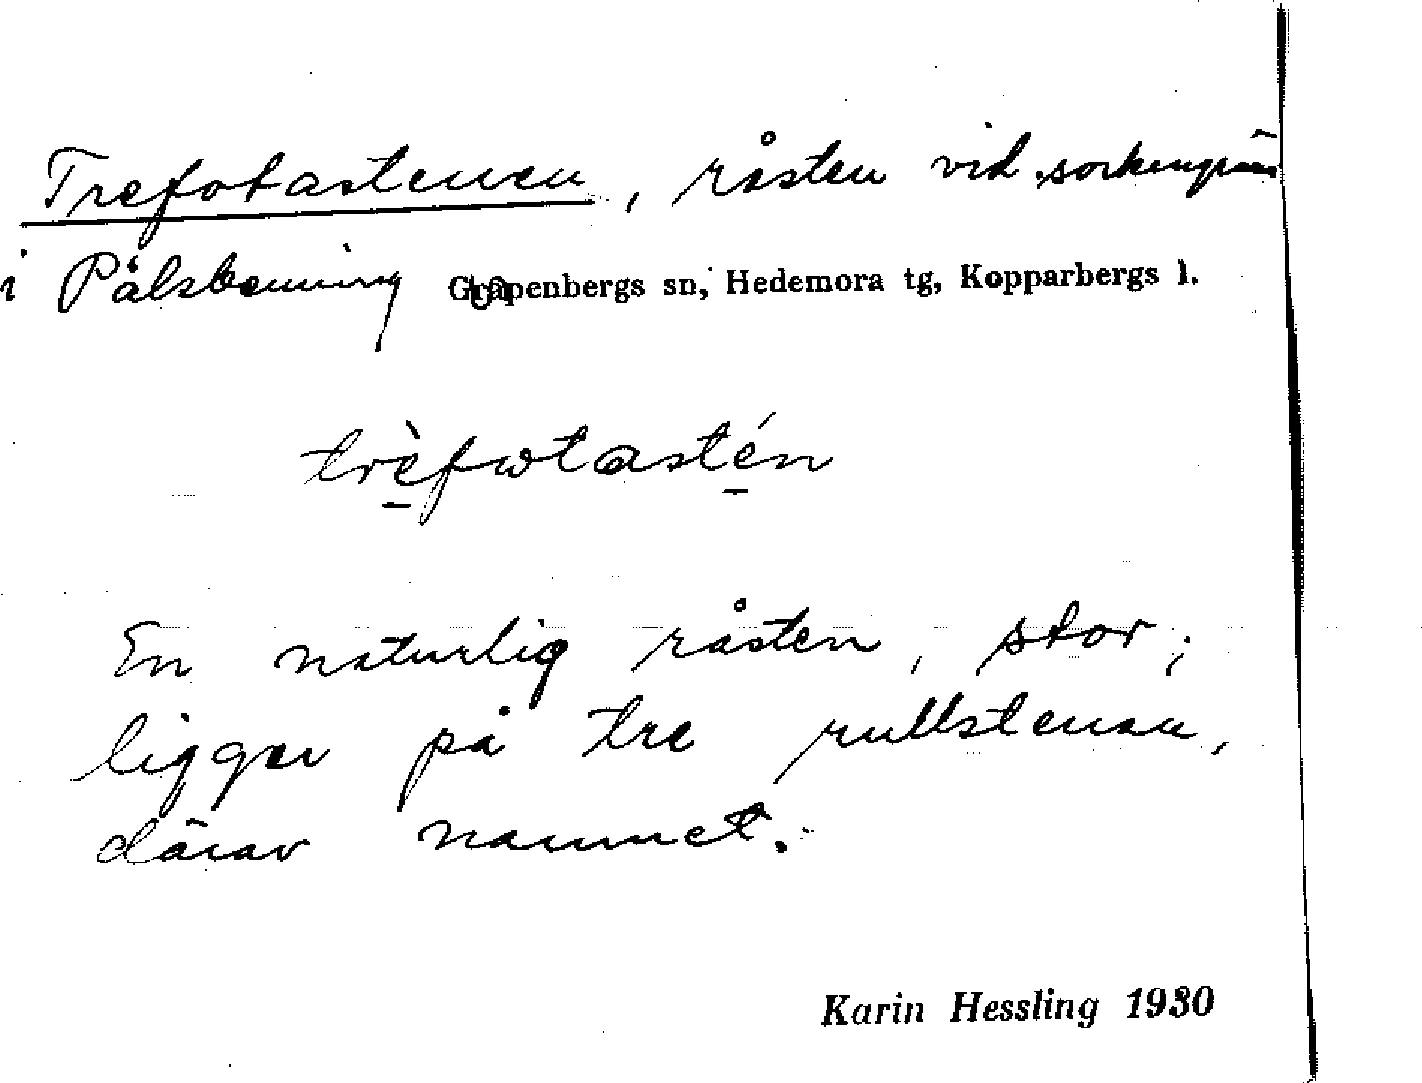 Trefotastenen, råsten vid sockengräns
i Pålsbenning Garpenbergs sn, Hedemora tg, Kopparbergs l.
trèfωtastén
En naturlig råsten, stor;
ligger på tre rullstenar,
därav namnet.
Karin Hessling 1930